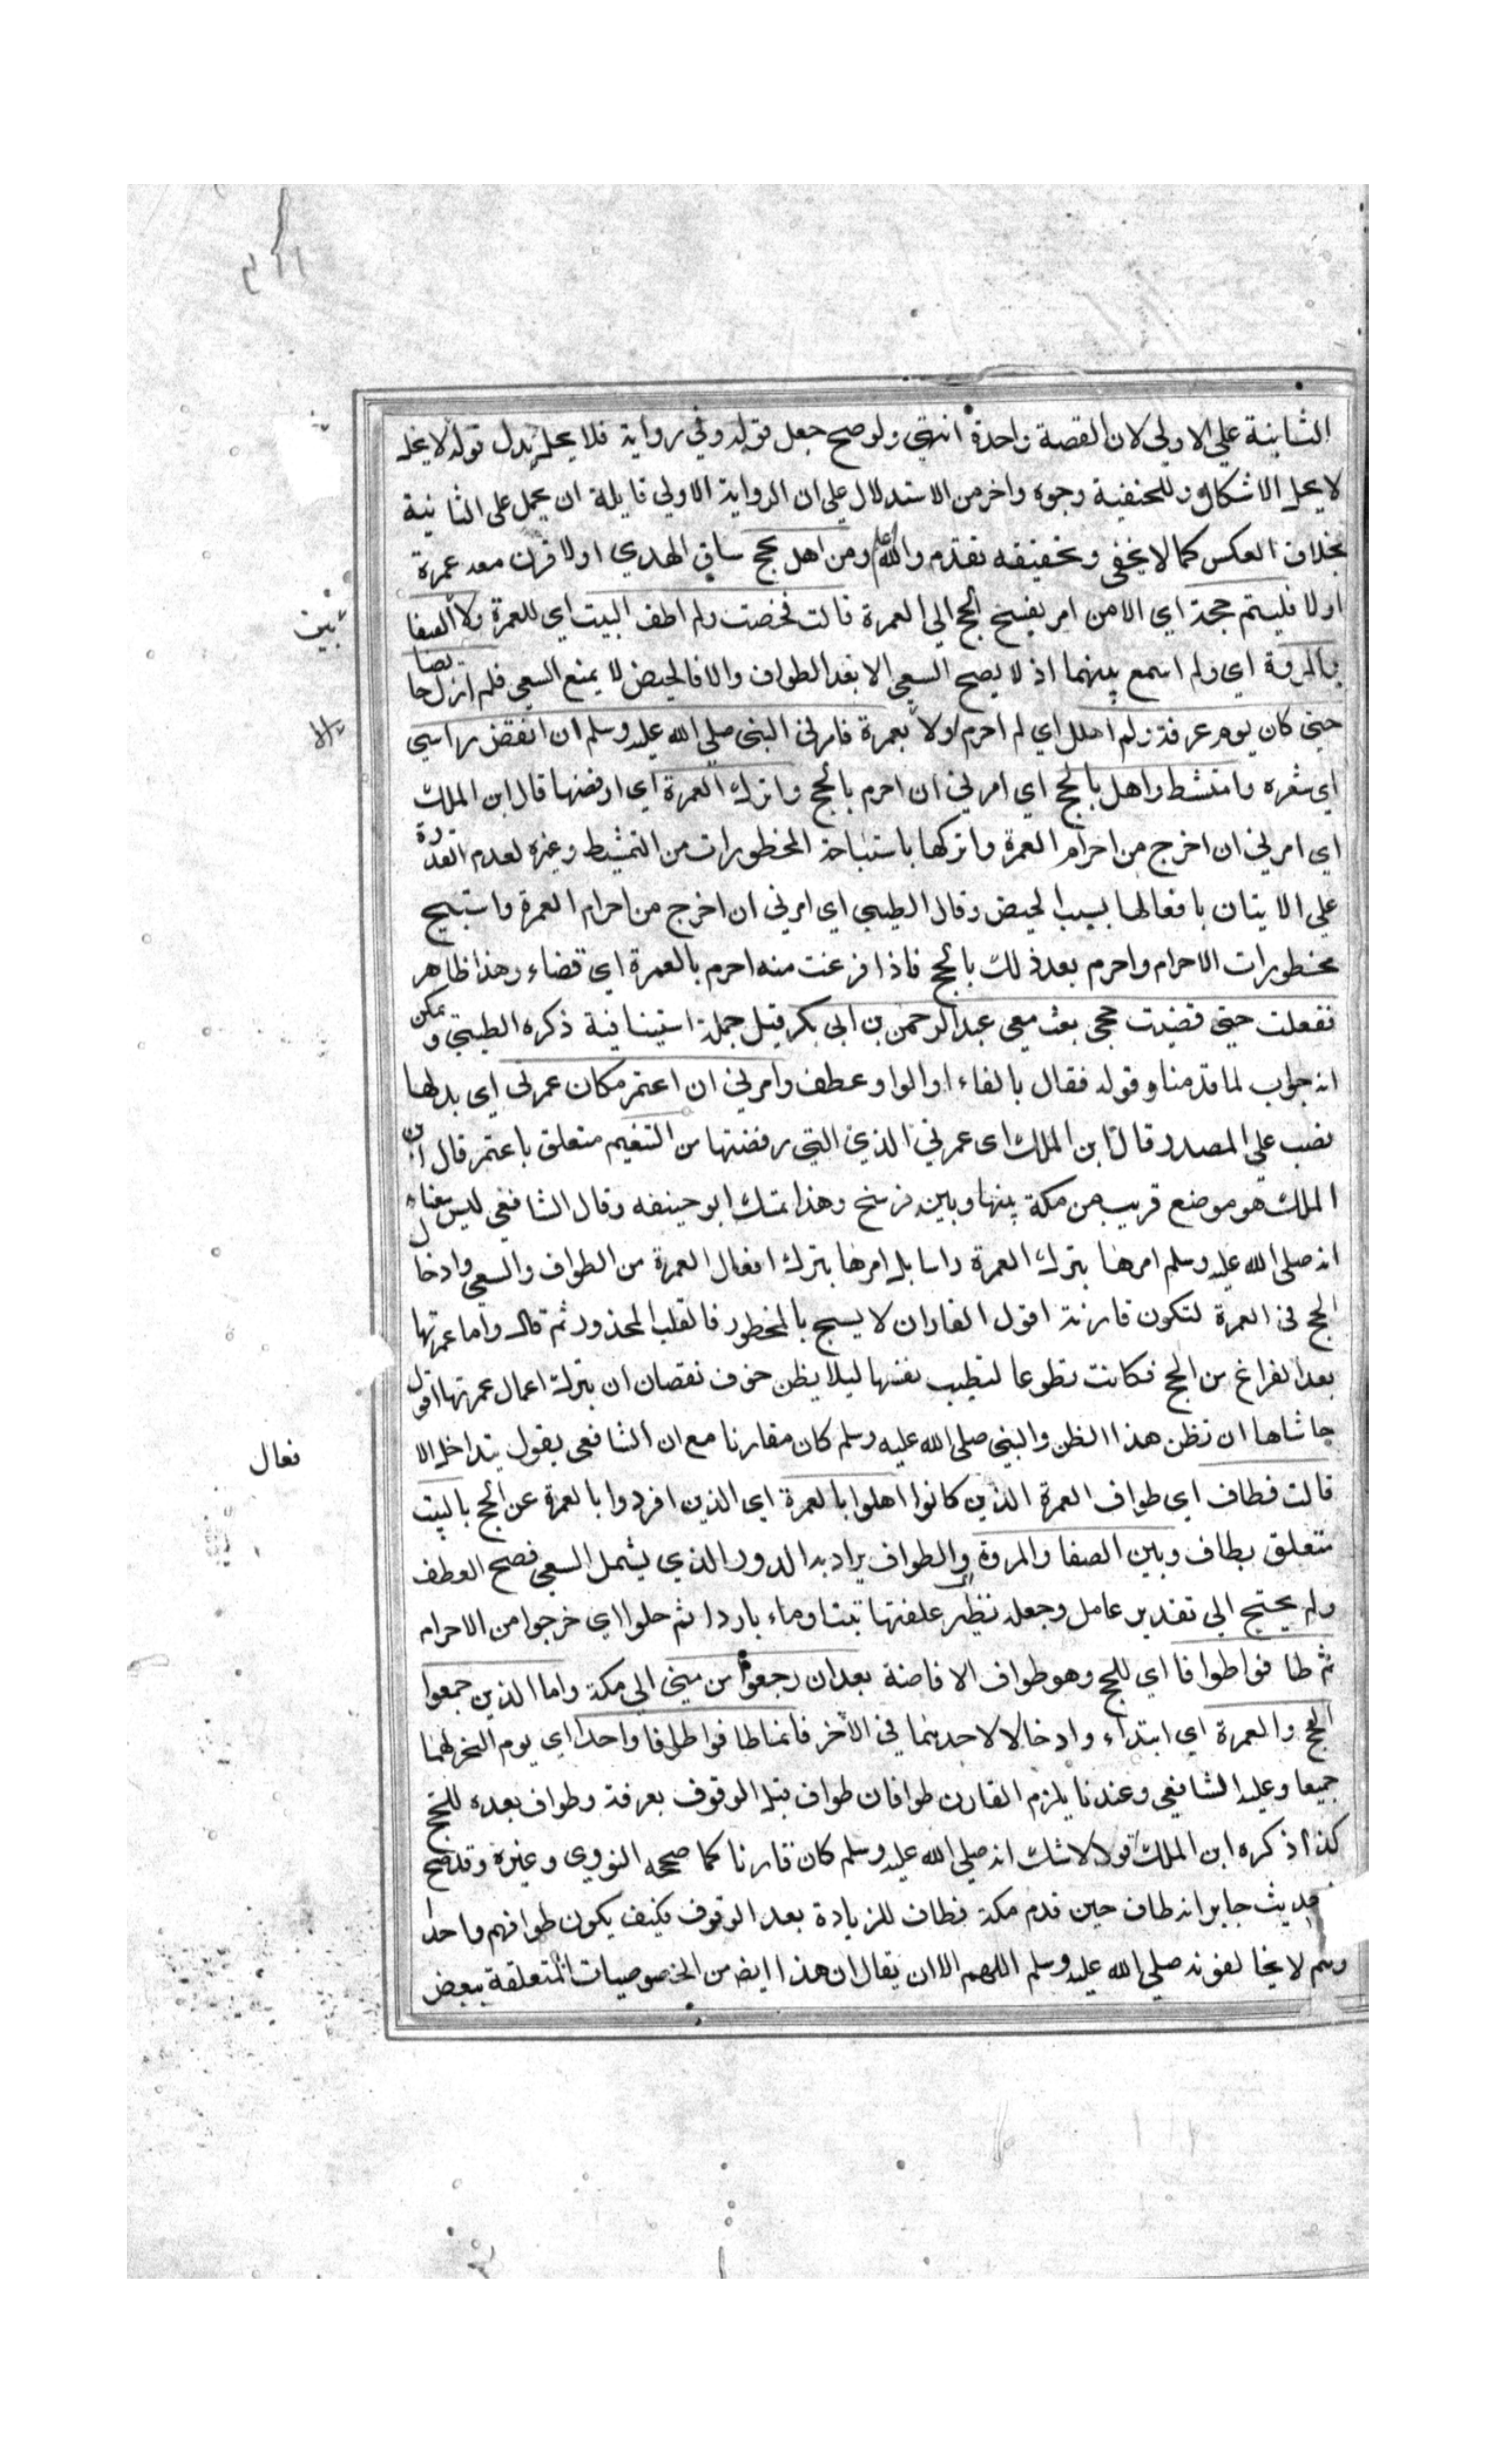 الثانية علي الاولي لان القصة واحدة انتهي ولو صح جعل قوله وفي رواية فلا يحل بدل قوله لا يحل
لا يحل الاشكال وللحنفية وجوه واخر من الاستدلال علي ان الرواية الاولي قايلة ان يحمل على الثانية
بخلاف العكس كما لا يخفى وتحقيقه تقدم والله اعلم ومن اهل بحج ساق الهدي اولا قرن معه عمرة
اولا فليتم حجه اي الا من امر بفسخ الحج الي العمرة قالت فحضت ولم اطف البيت اي للعمرة ولا الصفا
والمروة اي ولم اسمع بينهما اذ لا يصح السعي الا بعد الطواف والا فالحيض لا يمنع السعي فلم ازل حايضا
حتي كان يوم عرفة ولم اهلل اي لم احرم اولا بعمرة فامرني النبي صلي الله عليه وسلم ان انقض راسي
اي شعره وامتشط واهل بالحج اي امرني ان احرم بالحج واترك العمرة اي ارفضها قال ابن الملك
اي امرني ان اخرج من احرام العمرة واتركها باستباحة المحظورات من التمشيط وغيره لعدم القدرة
علي الايتان بافعالها بسبب الحيض وقال الطيبي اي امرني ان اخرج من احرام العمرة واستبيح
محظورات الاحرام واحرم بعد ذلك بالحج فاذا فرغت منه احرم بالعمرة اي قضاء وهذا ظاهر
ففعلت حتي قضيت حجي بعث معي عبد الرحمن بن ابي بكر قيل جملة استينافية ذكره الطيبي ويمكن
انه جواب لما قدمنا وقوله فقال بالفاء او الواو عطف وامرني ان اعتمر مكان عمرتي اي بدلها
نصب علي المصدر وقال ابن الملك اي عمرتي الذي التي رفضتها من التنعيم متعلق باعتمر قال ابن
الملك هو موضع قريب من مكة بينها وبين فرسخ وهذا تمسك ابو حنيفه وقال الشافعي ليس معناه
انه صلى الله عليه وسلم امرها بترك العمرة راسا بل امرها بترك افعال العمرة من الطواف والسعي وادخال
الحج في العمرة لتكون قارنة اقول القارن لا يسبح بالمحظور فالقلب المحذور ثم قال واما عمرتها
بعد الفراغ من الحج فكانت تطوعا لتطيب نفسها ليلا يظن خوف نقصان ان بترك اعمال عمرتها اقول
حاشاها ان تظن هذا الظن والنبي صلى الله عليه وسلم كان مقارنا مع ان الشافعي يقول بتداخل الا
قالت فطاف اي طواف العمرة الذين كانوا اهلوا بالعمرة اي الذين افردوا بالعمرة عن الحج بالبيت
متعلق بطاف وبين الصفا والمروة والطواف يراد به الدور الذي يشمل السعي فصح العطف
ولم يحتج الي تقدير عامل وجعله نظير علفتها تبنا وماء باردا ثم حلوا اي خرجوا من الاحرام
ثم طافوا طوافا اي للحج وهو طواف الافاضة بعد ان رجعوا من مني الي مكة واما الذين جمعوا
الحج والعمرة اي ابتداء وادخالا لاحدهما في الآخر فانما طافوا طوافا واحدا اي يوم النحر لهما
جميعا وعليه الشافعي وعندنا يلزم القارن طوافان طواف قبل الوقوف بعرفة وطواف بعده للحج
كذا ذكره ابن الملك قولا لا شك انه صلي الله عليه وسلم كان قارنا كما صححه النووي وغيره وقد صح
حديث جابر انه طاف حين قدم مكة فطاف للزيادة بعد الوقوف فكيف يكون طوافهم واحدا
وهم لا يخالفونه صلي الله عليه وسلم اللهم الا ان يقال ان هذا ايضا من الخصوصيات المتعلقة ببعض
فعال